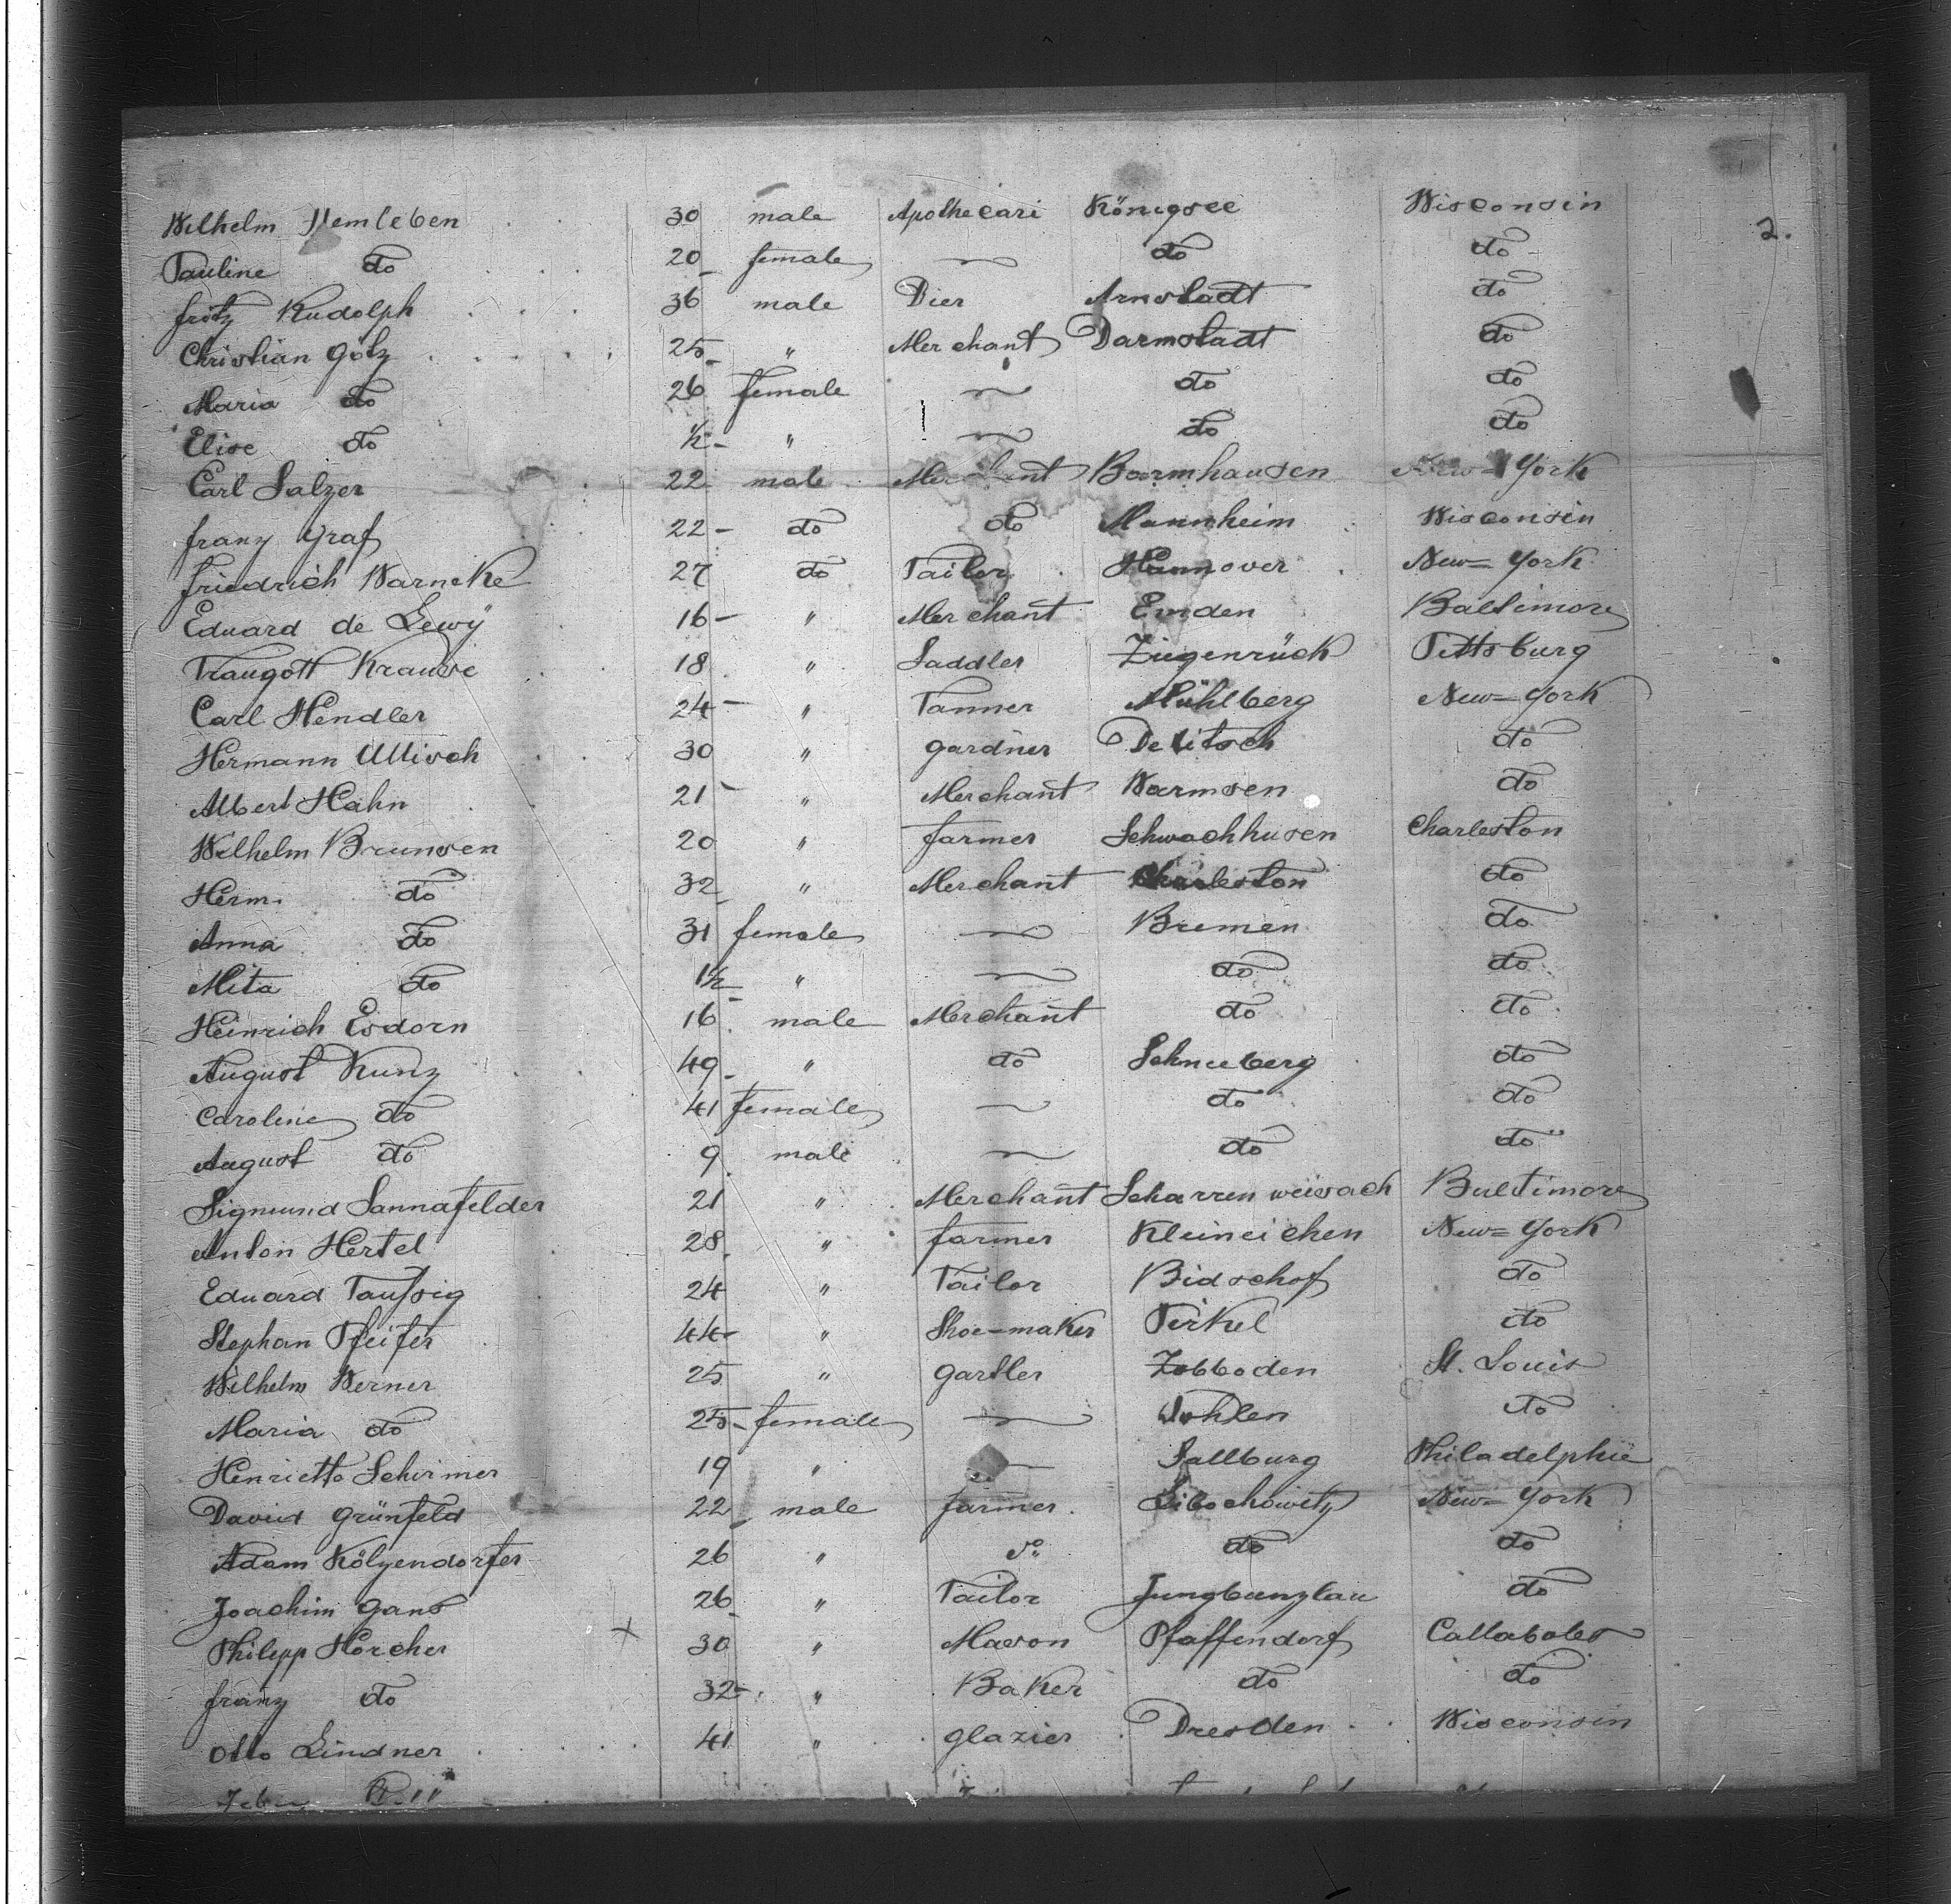 2.
Wilhelm Hemleben 30 male Apothecari Königsee Wisconsin
Pauline do 20 female do do
Fritz Rudolph 36 male Dier Arnstadt do
Christian Götz 25 " Merchant Darmstadt do
Maria do 26 female do do
Elise do ½ " do do
Carl Salzer 22 male Merchant Barmhausen New-York
Franz Graf 22 do do Mannheim Wisconsin
Friedrich Warneke 27 do Tailor Hannover New-York
Eduard de Lewÿ 16 " Merchant Emden Baltimore
Traugott Krause 18 " Saddler Ziegenrück Pittsburg
Carl Hendler 24 " Tanner Mühlberg New-York
Hermann Ullisch 30 " gardner Delitsch do
Albert Hahn 21 " Merchant Warmsen do
Wilhelm Brunsen 20 " farmer Schwachhusen Charleston
Herm. do 32 " Merchant Charleston do
Anna do 31 female Bremen do
Meta do 1½ " do do
Heinrich Esdorn 16 male Merchant do do
August Kunz 49 " do Schneeberg do
Caroline do 41 female do do
August do 9 male do do
Sigmund Sannafelder 21 " Merchant Scharrenweisach Baltimore
Anton Hertel 28 " farmer Kleineichen New-York
Eduard Taußig 24 " Tailor Bidschof do
Stephan Pfeifer 44 " Shoe-maker Pirkel do
Wilhelm Werner 25 " gartler Zobboden St. Louis
Maria do 25 female do
Henriette Schirmer 19 " Sallburg Philadelphie
David Grünfeld 22 male farmer Libochowitz New-York
Adam Kölzendorfer 26 " do do do
Joachim Gans 26 " Tailor Jungbunzlau do
Philipp Horcher + 30 " Mason Pfaffendorf Callaboles
Franz do 32 " Baker do do
Otto Lindner 41 " glazier Dresden Wisconsin